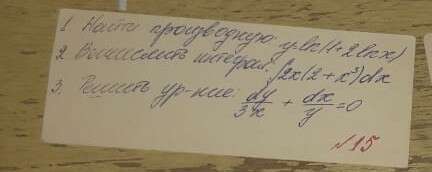 1 Найти производную: y ln(1+2lnx)
2. Вычислить интеграл: ∫2x(2+x³)dx
3. Решить ур-ние: dy/3x + dx/y =0
№15